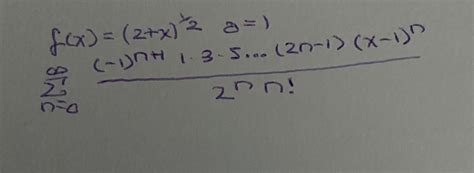 f(x) = (2+x)^1/2 a=1
∞ Σ n=0 (-1)^n+1 1·3·5...(2n-1) (x-1)^n / 2^n n!